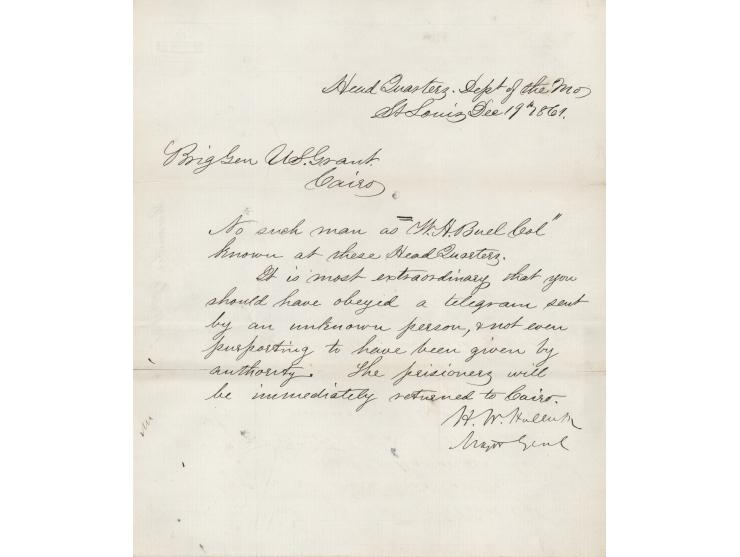 Head Quarters. Dept of the Mo,
St Louis Dec 19th 1861.
Brig Gen U.S. Grant.
Cairo,
No such man as "W. H. Buel Col"
known at these Head Quarters.
It is most extraordinary that you
should have obeyed a telegram sent
by an unknown person, & not even
purporting to have been given by
authority. The prisioners will
be immediately returned to Cairo.
H. W. Halleck
Major Genl